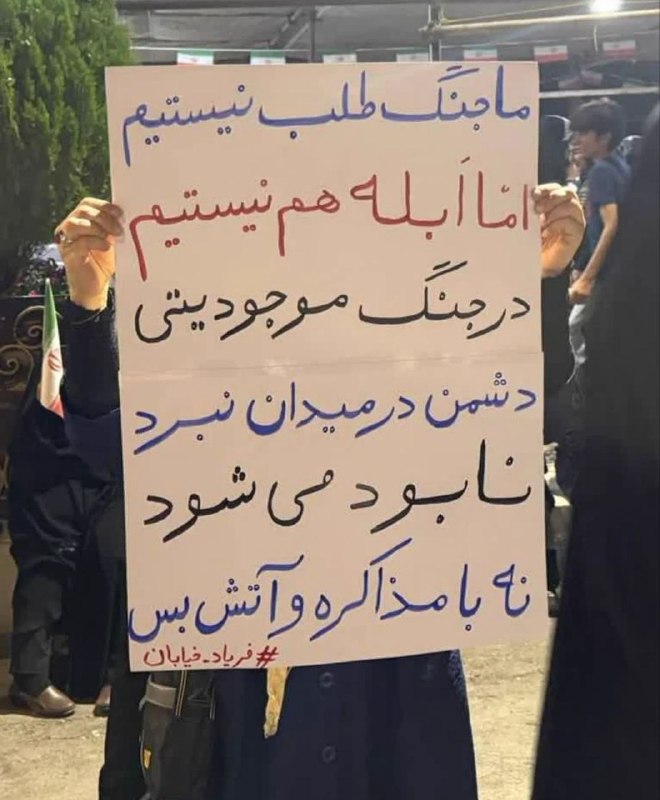 ما جنگ طلب نیستیم
امّا اَبله هم نیستیم
در جنگ موجودیتی
دشمن در میدان نبرد
نابود می شود
نه با مذاکره و آتش بس
#فریاد_خیابان